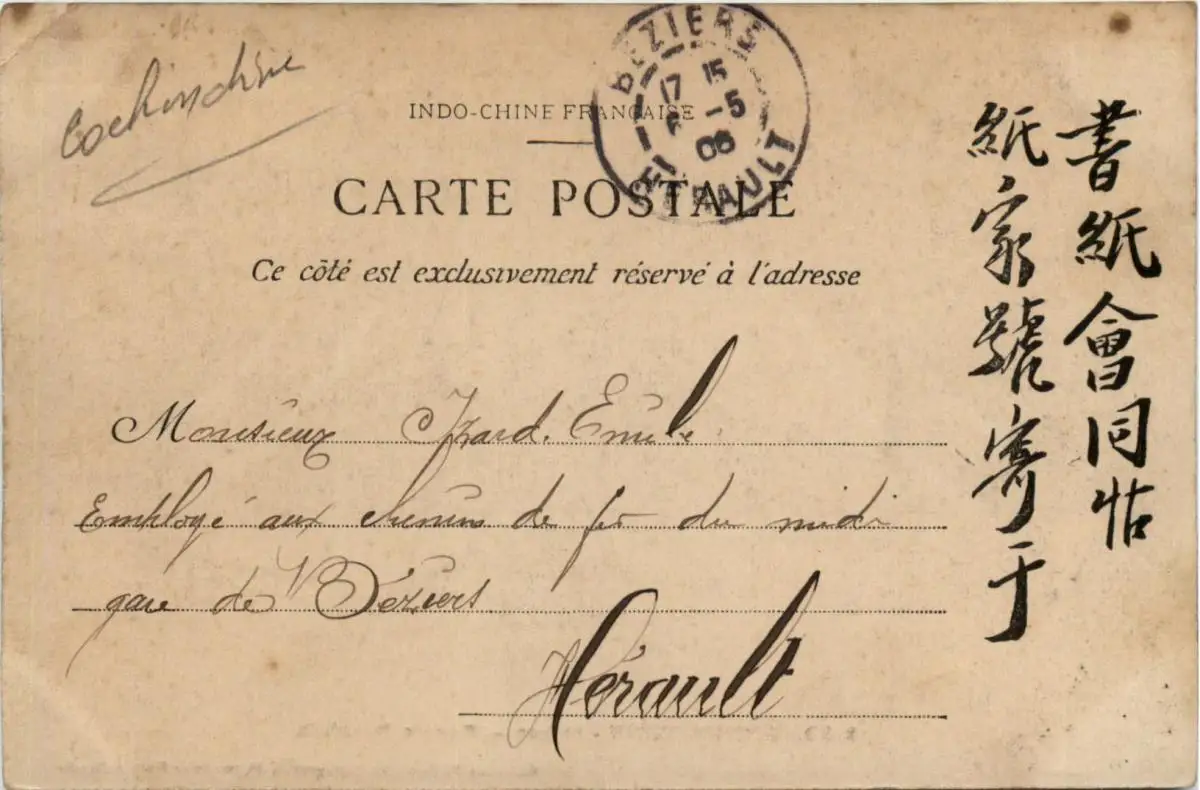 Cochinchine
BEZIERS
17 15
6 -5
06
HERAULT
INDO-CHINE FRANÇAISE
CARTE POSTALE
Ce côté est exclusivement réservé à l'adresse
Monsieur Izard. Emile
Employé aux chemins de fer du midi
gare de Béziers
Hérault
書紙會同帖
紙家號寄于